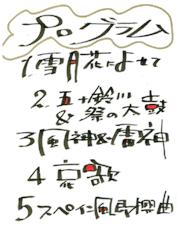 プログラム
1 雪月花によせて
2. 五十鈴川
& 祭の太鼓
3 風神&雷神
4 花歌
5 スペイン風即興曲